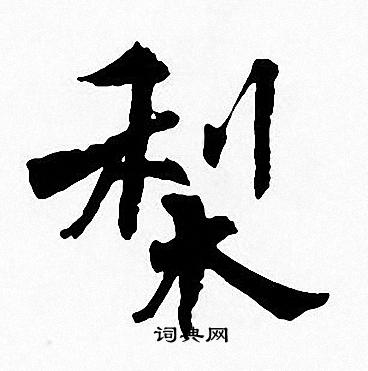 梨
词典网